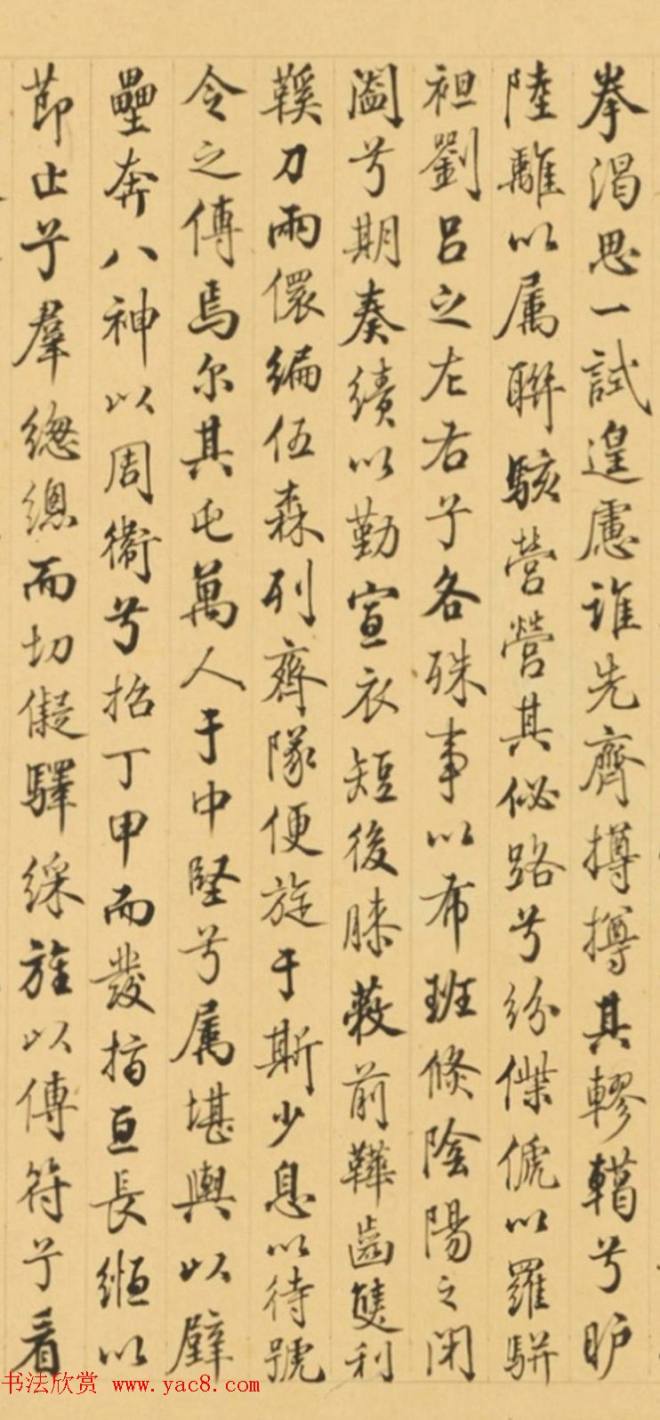 拳渴思一試遑慮誰先齊撙撙其轇轕兮旷
陸離以属聯駭營營其佖路兮紛傑俿以羅駢
袒劉呂之左右兮各殊事以布班倏陰陽之闭
闔兮期奏績以勤宣衣短後膝蔽前鞾齒雙利
鞵刀兩儇編伍森列齊隊便旋于斯少息以待號
令之傳焉尔其屯萬人于中堅兮属堪輿以壁
壘奔八神以周衛兮招丁甲而發指亘長緪以
莭止兮羣總總而切儗驛綵旌以傳符兮看
书法欣赏 www.yac8.com